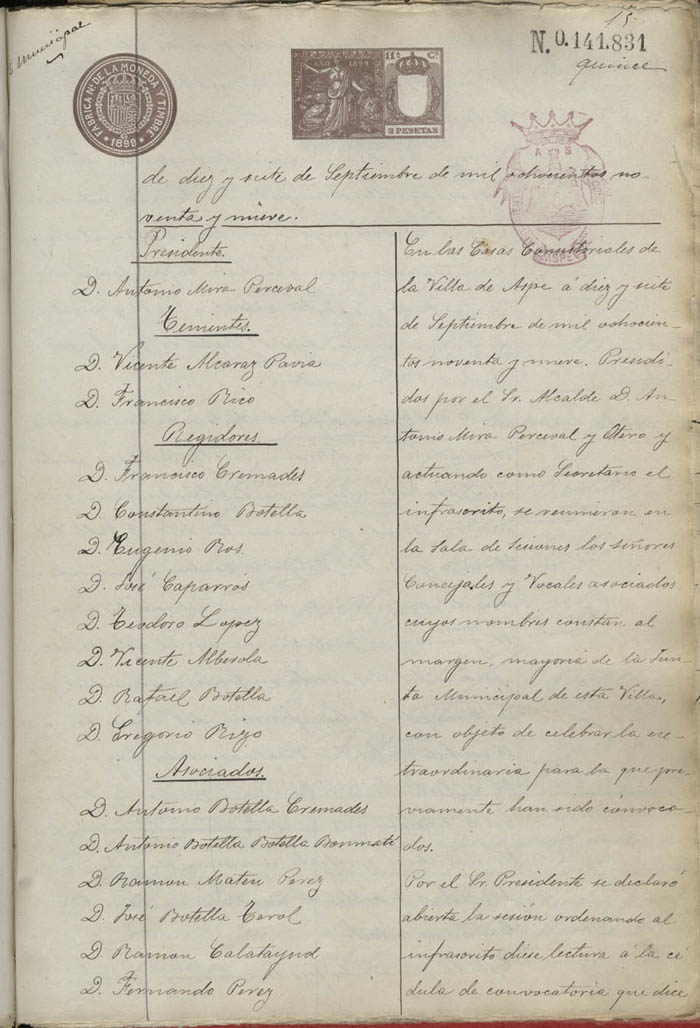 Municipal
15
N. 0.141.831
quince
FABRICA Nᴸ DE LA MONEDA Y TIMBRE
1899
AÑO 1899
11ª Cᴱ
2 PESETAS
A S
de diez y siete de Septiembre de mil ochocientos no-
venta y nueve.
Presidente.
D. Antonio Mira Perceval
Tenientes.
D. Vicente Alcaraz Pavia
D. Francisco Rico
Regidores.
D. Francisco Cremades
D. Constantino Botella
D. Eugenio Ros
D. José Caparrós
D. Teodoro Lopez
D. Vicente Alberola
D. Rafael Botella
D. Gregorio Rizo
Asociados.
D. Antonio Botella Cremades
D. Antonio Botella Botella Bonmatí
D. Ramon Mateu Perez
D. José Botella Terol
D. Ramon Calatayud
D. Fernando Perez
En las Casas Consistoriales de
la Villa de Aspe á diez y siete
de Septiembre de mil ochocien-
tos noventa y nueve. Presidi-
dos por el Sr. Alcalde D. An-
tonio Mira Perceval y Otero y
actuando como Secretario el
infrascrito, se reunieron en
la Sala de Sesiones los señores
Concejales y Vocales asociados
cuyos nombres constan al
margen, mayoria de la Jun-
ta Municipal de esta Villa,
con objeto de celebrar la ex-
traordinaria para la que pre-
viamente han sido convoca-
dos.
Por el Sr. Presidente se declaró
abierta la sesión ordenando al
infrascrito diese lectura á la cé
dula de convocatoria que dice